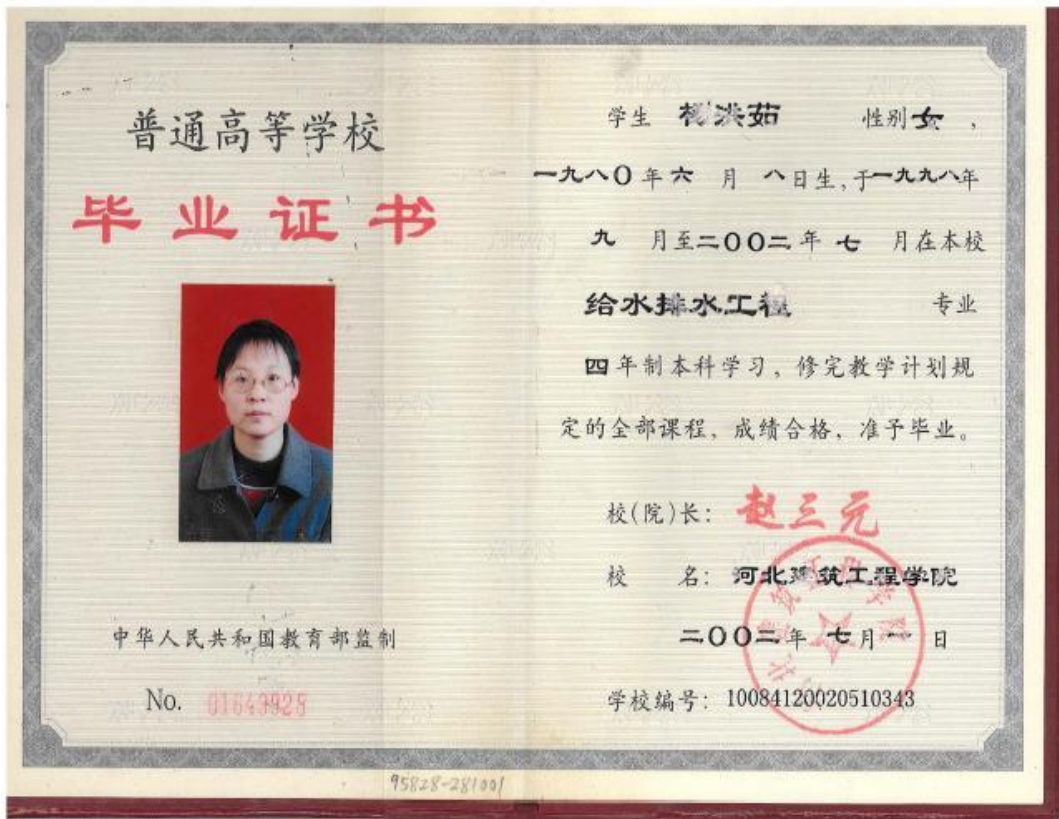 普通高等学校
毕业证书
中华人民共和国教育部监制
No. 01643928
学生 杨洪茹 性别 女，
一九八〇年六月八日生，于一九九八年
九月至二〇〇二年七月在本校
给水排水工程 专业
四年制本科学习，修完教学计划规
定的全部课程，成绩合格，准予毕业。
校(院)长：赵三元
校名：河北建筑工程学院
二〇〇二年七月一日
学校编号：10084120020510343
95828-281001